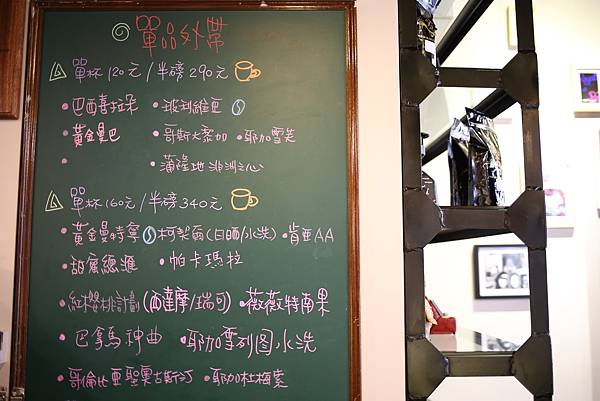 單品外帶
單杯120元/半磅290元
•巴西喜拉朵 •玻利維亞
•黃金曼巴 •哥斯大黎加 •耶加雪芙
• •蒲隆地 非洲之心
單杯160元/半磅340元
•黃金曼特寧 •柯契爾(日曬/水洗) •肯亞AA
•甜蜜總滙 •帕卡瑪拉
•紅櫻桃計劃(西達摩/瑞可) •薇薇特南果
•巴拿馬神曲 •耶加雪列图水洗
•哥倫比亞聖奧古斯汀 •耶加杜梅索